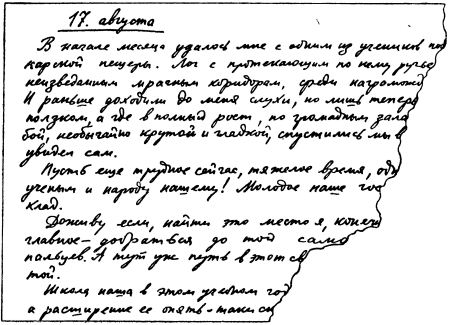 17. августа
В начале месяца удалось мне с одним из учеников по
карской пещеры. Лог с протекающим по нему ручье
неизведанным мрачным коридорам, среди нагроможд
И раньше доходили до меня слухи, но лишь тепере
ползком, а где в полный рост, по громадным зала
бой, необычайно крутой и гладкой, спустились мы в
увидел сам.
Пусть еще трудное сейчас, тяжелое время, объ
ученым и народу нашему! Молодое наше гос
клад.
Доживу если, найти это место я, конечн
главное – добраться до той само
пальцев. А тут уж путь в этот св
той.
Школа наша в этом учебном год
а расширение ее опять-таки ск